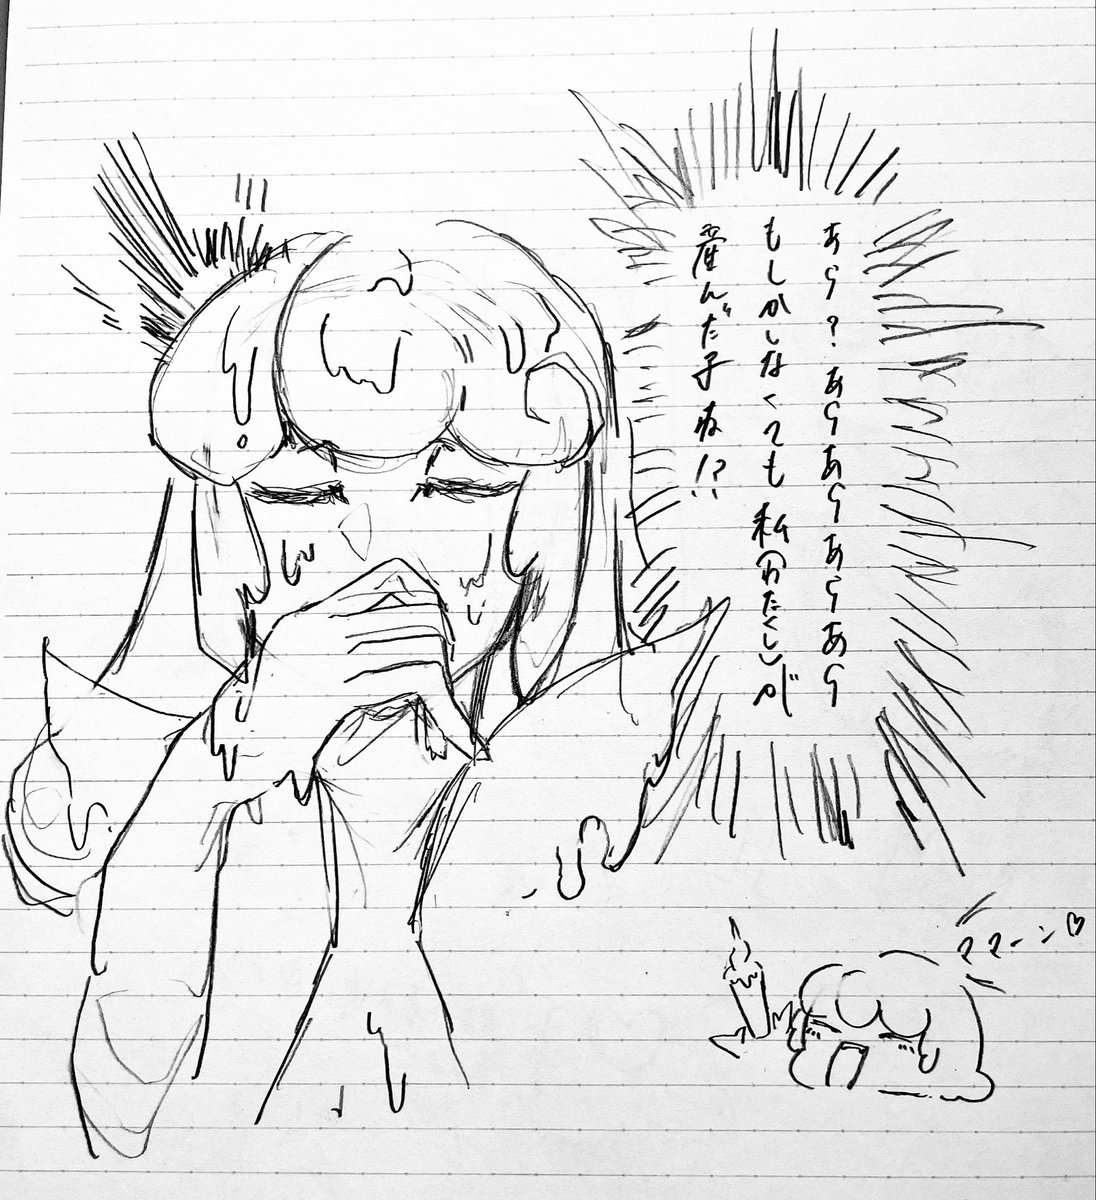 あら？あらあらあらあら
もしかしなくても私(わたくし)が
産んだ子ね!?
ママーン♡